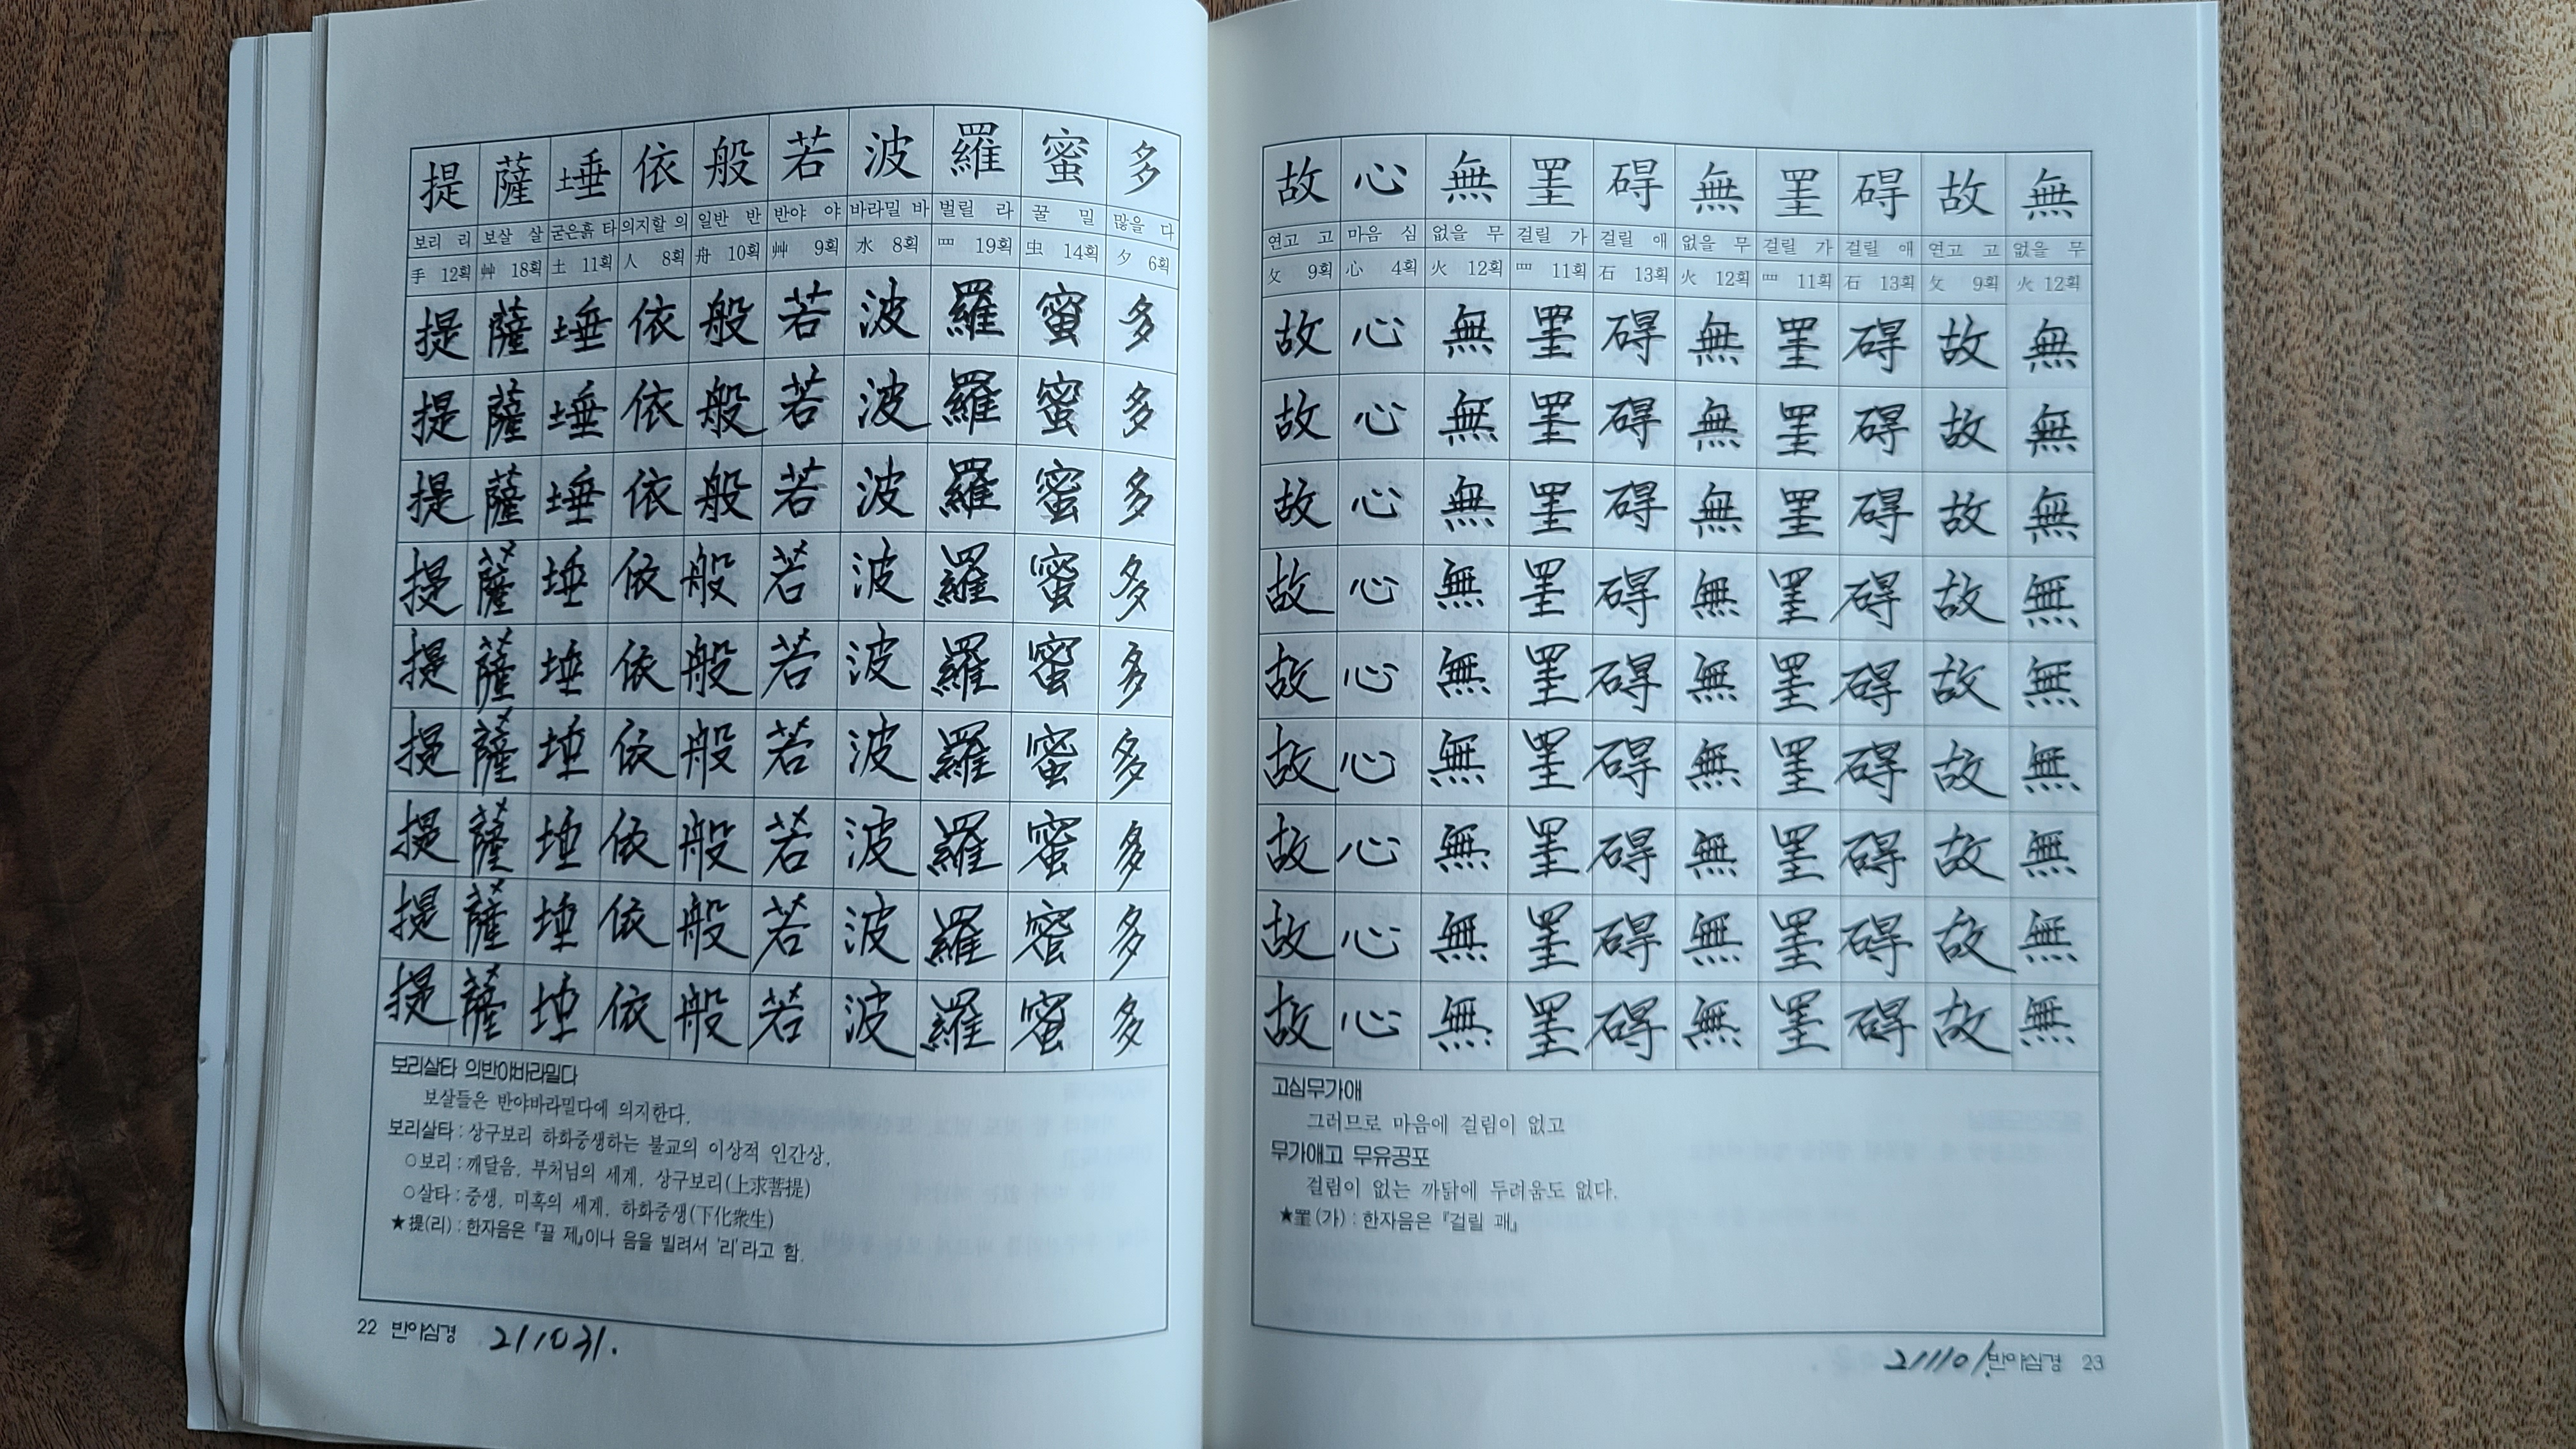 提 薩 埵 依 般 若 波 羅 蜜 多
보리 리 보살 살 굳은흙 타 의지할 의 일반 반 반야 야 바라밀 바 벌릴 라 꿀 밀 많을 다
手 12획 艸 18획 土 11획 人 8획 舟 10획 艸 9획 水 8획 罒 19획 虫 14획 夕 6획
提 薩 埵 依 般 若 波 羅 蜜 多
提 薩 埵 依 般 若 波 羅 蜜 多
提 薩 埵 依 般 若 波 羅 蜜 多
提 薩 埵 依 般 若 波 羅 蜜 多
提 薩 埵 依 般 若 波 羅 蜜 多
提 薩 埵 依 般 若 波 羅 蜜 多
提 薩 埵 依 般 若 波 羅 蜜 多
提 薩 埵 依 般 若 波 羅 蜜 多
提 薩 埵 依 般 若 波 羅 蜜 多
보리살타 의반야바라밀다
보살들은 반야바라밀다에 의지한다.
보리살타 : 상구보리 하화중생하는 불교의 이상적 인간상,
○보리 : 깨달음, 부처님의 세계, 상구보리(上求菩提)
○살타 : 중생, 미혹의 세계, 하화중생(下化衆生)
★提(리) : 한자음은 『끌 제』이나 음을 빌려서 '리'라고 함.
22 반야심경 211031.
故 心 無 罣 碍 無 罣 碍 故 無
연고 고 마음 심 없을 무 걸릴 가 걸릴 애 없을 무 걸릴 가 걸릴 애 연고 고 없을 무
攵 9획 心 4획 火 12획 罒 11획 石 13획 火 12획 罒 11획 石 13획 攵 9획 火 12획
故 心 無 罣 碍 無 罣 碍 故 無
故 心 無 罣 碍 無 罣 碍 故 無
故 心 無 罣 碍 無 罣 碍 故 無
故 心 無 罣 碍 無 罣 碍 故 無
故 心 無 罣 碍 無 罣 碍 故 無
故 心 無 罣 碍 無 罣 碍 故 無
故 心 無 罣 碍 無 罣 碍 故 無
故 心 無 罣 碍 無 罣 碍 故 無
故 心 無 罣 碍 無 罣 碍 故 無
고심무가애
그러므로 마음에 걸림이 없고
무가애고 무유공포
걸림이 없는 까닭에 두려움도 없다.
★罣(가) : 한자음은 『걸릴 괘』
211101. 반야심경 23